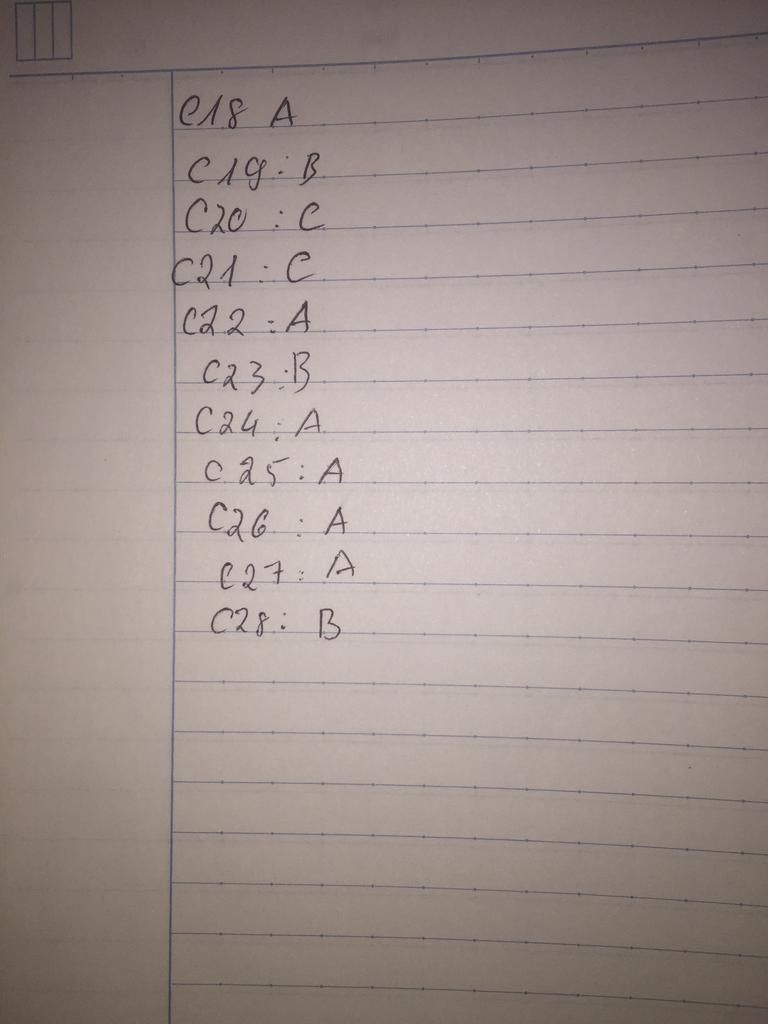 C18 A
C19: B
C20 : C
C21 : C
C22 : A
C23 : B
C24 : A
C 25 : A
C26 : A
C27 : A
C28 : B